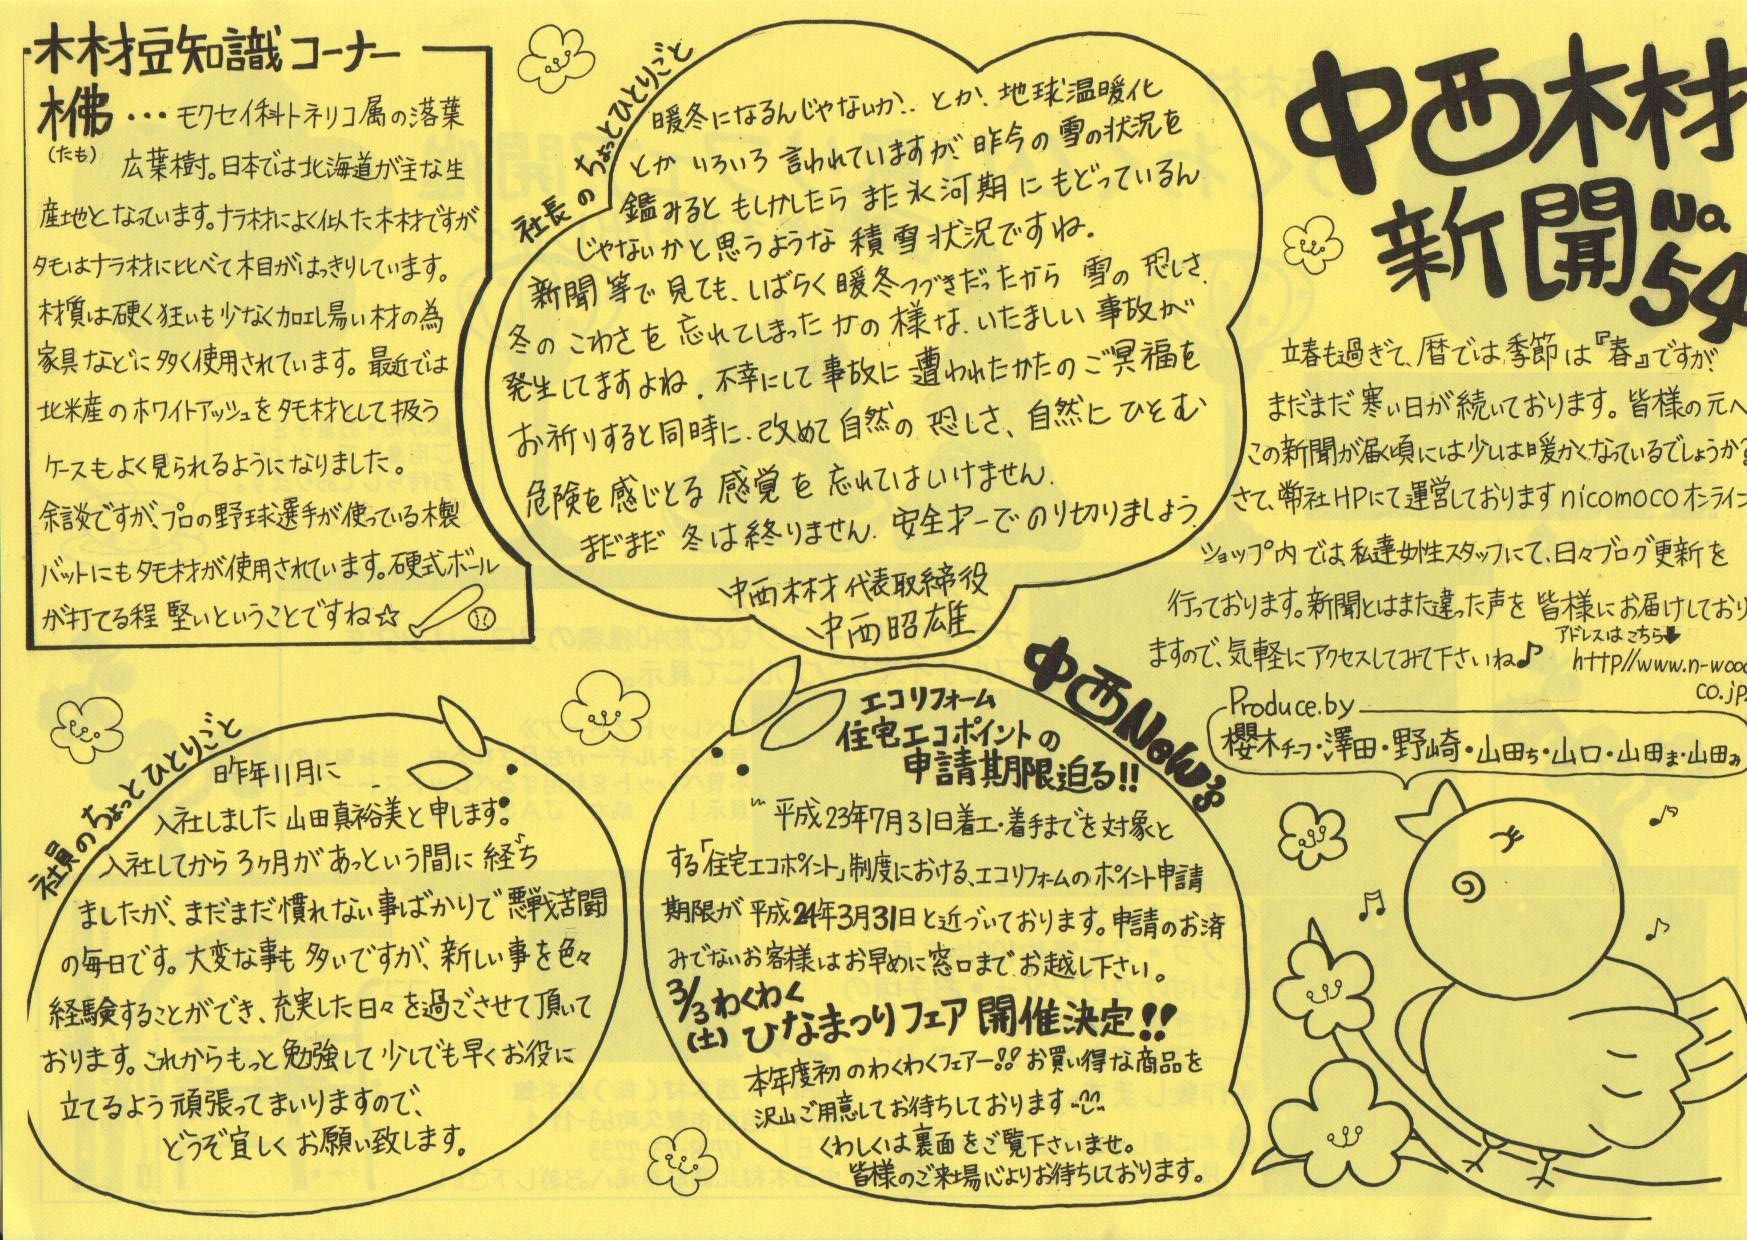 中西木材
新聞 No.54
立春も過ぎて、暦では季節は『春』ですが
まだまだ寒い日が続いております。皆様の元へ
この新聞が届く頃には少しは暖かくなっているでしょうか?
さて、弊社HPにて運営しておりますnicomocoオンライン
ショップ内では私達女性スタッフにて、日々ブログ更新を
行っております。新聞とはまた違った声を皆様にお届けしており
ますので、気軽にアクセスしてみて下さいね♪
アドレスはこちら
http//www.n-wood
co.jp
Produce.by
櫻木チーフ・澤田・野崎・山田ち・山口・山田ま・山田み
社長のちょっとひとりごと
暖冬になるんじゃないか‥とか、地球温暖化
とかいろいろ言われていますが、昨今の雪の状況を
鑑みるともしかしたらまた氷河期にもどっているん
じゃないかと思うような積雪状況ですね。
新聞等で見ても、しばらく暖冬つづきだったから雪の恐しさ、
冬のこわさを忘れてしまったかの様な、いたましい事故が
発生してますよね。不幸にして事故に遭われたかたのご冥福を
お祈りすると同時に、改めて自然の恐しさ、自然にひそむ
危険を感じとる感覚を忘れてはいけません。
まだまだ冬は終りません。安全才一でのり切りましょう
中西木材代表取締役
中西昭雄
木材豆知識コーナー
梻(たも)…モクセイ科トネリコ属の落葉
広葉樹。日本では北海道が主な生
産地となっています。ナラ材によく似た木材ですが
タモはナラ材に比べて木目がはっきりしています。
材質は硬く狂いも少なく加工し易い材の為
家具などに多く使用されています。最近では
北米産のホワイトアッシュをタモ材として扱う
ケースもよく見られるようになりました。
余談ですが、プロの野球選手が使っている木製
バットにもタモ材が使用されています。硬式ボール
が打てる程堅いということですね☆
中西New's
エコリフォーム
住宅エコポイントの
申請期限迫る!!
平成23年7月31日着工・着手までを対象と
する「住宅エコポイント」制度における、エコリフォームのポイント申請
期限が平成24年3月31日と近づいております。申請のお済
みでないお客様はお早めに窓口までお越し下さい。
3/3(土)わくわく
ひなまつりフェア開催決定!!
本年度初のわくわくフェアー!!お買い得な商品を
沢山ご用意してお待ちしております
くわしくは裏面をご覧下さいませ。
皆様のご来場心よりお待ちしております。
社員のちょっとひとりごと
昨年11月に
入社しました山田真裕美と申します。
入社してから3ヶ月があっという間に経ち
ましたが、まだまだ慣れない事ばかりで悪戦苦闘
の毎日です。大変な事も多いですが、新しい事を色々
経験することができ、充実した日々を過ごさせて頂いて
おります。これからもっと勉強して少しでも早くお役に
立てるよう頑張ってまいりますので、
どうぞ宜しくお願い致します。